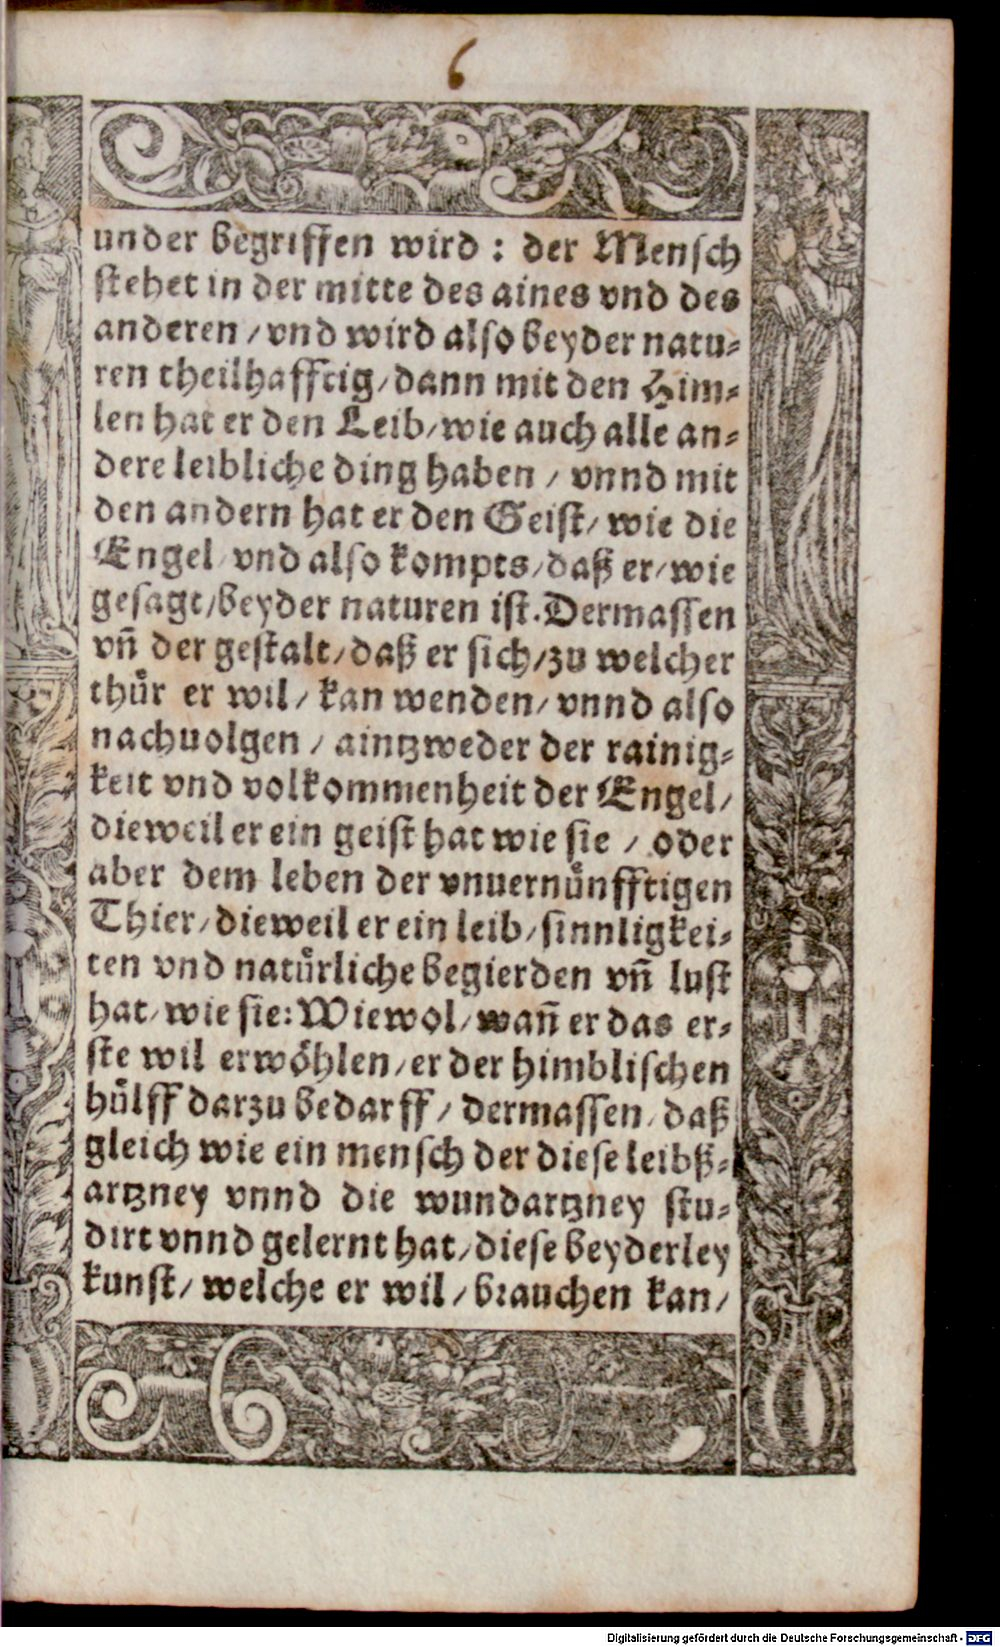 6
under begriffen wird : der Mensch
stehet in der mitte des aines vnd des
anderen / vnd wird also beyder natu⸗
ren theilhafftig / dann mit den Him⸗
len hat er den Leib / wie auch alle an⸗
dere leibliche ding haben / vnnd mit
den andern hat er den Geist / wie die
Engel / vnd also kompts / daß er / wie
gesagt / beyder naturen ist. Dermassen
vñ der gestalt / daß er sich / zu welcher
thuͤr er wil / kan wenden / vnnd also
nachuolgen / aintzweder der rainig⸗
keit vnd volkommenheit der Engel /
dieweil er ein geist hat wie sie / oder
aber dem leben der vnuernuͤnfftigen
Thier / dieweil er ein leib / sinnligkei⸗
ten vnd natuͤrliche begierden vñ lust
hat / wie sie: Wiewol / wañ er das er⸗
ste wil erwoͤhlen / er der himblischen
huͤlff darzu bedarff / dermassen / daß
gleich wie ein mensch der diese leibß⸗
artzney vnnd die wundartzney stu⸗
dirt vnnd gelernt hat / diese beyderley
kunst / welche er wil / brauchen kan /
Digitalisierung gefördert durch die Deutsche Forschungsgemeinschaft - DFG